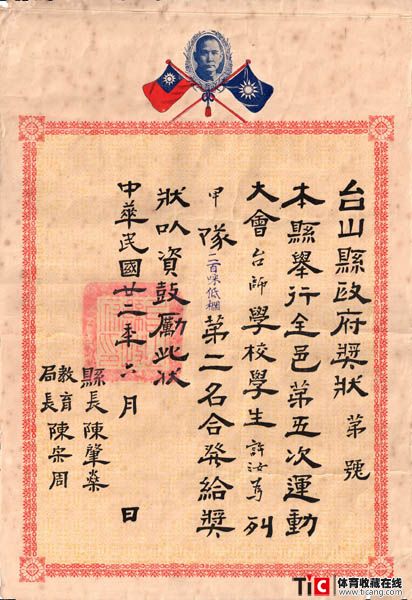 台山縣政府獎狀 第 號
本縣舉行全邑第五次運動
大會台師學校學生許汝 列
甲隊二百咪低欄第二名合發給獎
狀以資鼓勵此狀
中華民國廿三年六月 日
縣長陳肇燊
教育局長陳宗周
TiC 体育收藏在线
www.ticang.com